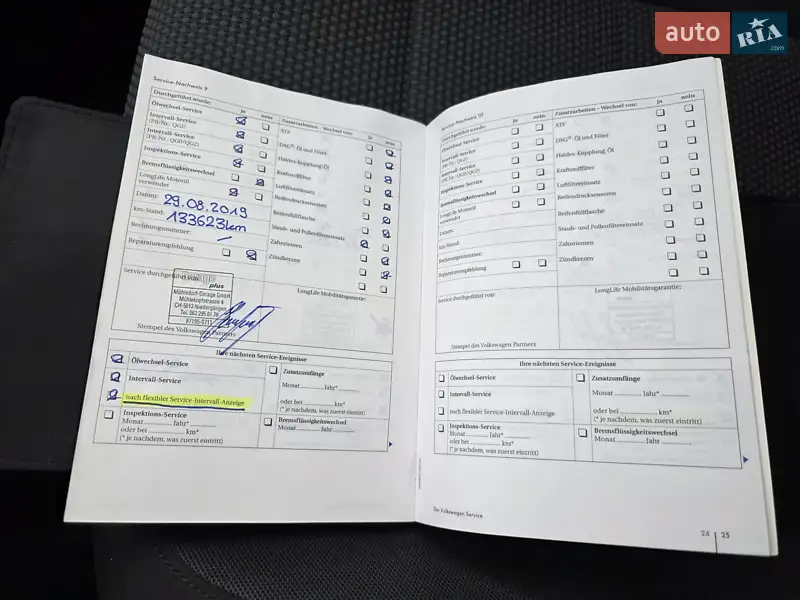 auto
RIA
.com
Service-Nachweis 9
Durchgeführt wurde:
ja
nein
Zusatzarbeiten – Wechsel von:
ja
nein
Ölwechsel-Service
Intervall-Service
(PR-Nr. QG1)
Intervall-Service
(PR-Nr. QG0/QG2)
Inspektions-Service
Bremsflüssigkeitswechsel
LongLife Motoröl
verwendet
ATF
DSG®: Öl und Filter
Haldex-Kupplung: Öl
Kraftstofffilter
Luftfiltereinsatz
Reifendrucksensoren
Reifenfüllflasche
Staub- und Pollenfiltereinsatz
Zahnriemen
Zündkerzen
Datum: 29.08.2019
km-Stand: 133623km
Rechnungsnummer:
Reparaturempfehlung
Service durchgeführt von:
plus
Mühledorf-Garage GmbH
Mühlekopfstrasse 4
Stempel des Volkswagen Partners
LongLife Mobilitätsgarantie:
Ihre nächsten Service-Ereignisse
Ölwechsel-Service
Intervall-Service
nach flexibler Service-Intervall-Anzeige
Inspektions-Service
Monat Jahr*
oder bei km*
(* je nachdem, was zuerst eintritt)
Zusatzumfänge
Monat Jahr*
oder bei km*
(* je nachdem, was zuerst eintritt)
Bremsflüssigkeitswechsel
Monat Jahr
Service-Nachweis 10
Durchgeführt wurde:
ja
nein
Zusatzarbeiten – Wechsel von:
ja
nein
Ölwechsel-Service
Intervall-Service
(PR-Nr. QG1)
Intervall-Service
(PR-Nr. QG0/QG2)
Inspektions-Service
Bremsflüssigkeitswechsel
LongLife Motoröl
verwendet
ATF
DSG®: Öl und Filter
Haldex-Kupplung: Öl
Kraftstofffilter
Luftfiltereinsatz
Reifendrucksensoren
Reifenfüllflasche
Staub- und Pollenfiltereinsatz
Zahnriemen
Zündkerzen
Datum:
km-Stand:
Rechnungsnummer:
Reparaturempfehlung
Service durchgeführt von:
Stempel des Volkswagen Partners
LongLife Mobilitätsgarantie:
Ihre nächsten Service-Ereignisse
Ölwechsel-Service
Intervall-Service
nach flexibler Service-Intervall-Anzeige
Inspektions-Service
Monat Jahr*
oder bei km*
(* je nachdem, was zuerst eintritt)
Zusatzumfänge
Monat Jahr*
oder bei km*
(* je nachdem, was zuerst eintritt)
Bremsflüssigkeitswechsel
Monat Jahr
Ihr Volkswagen Service
24
25